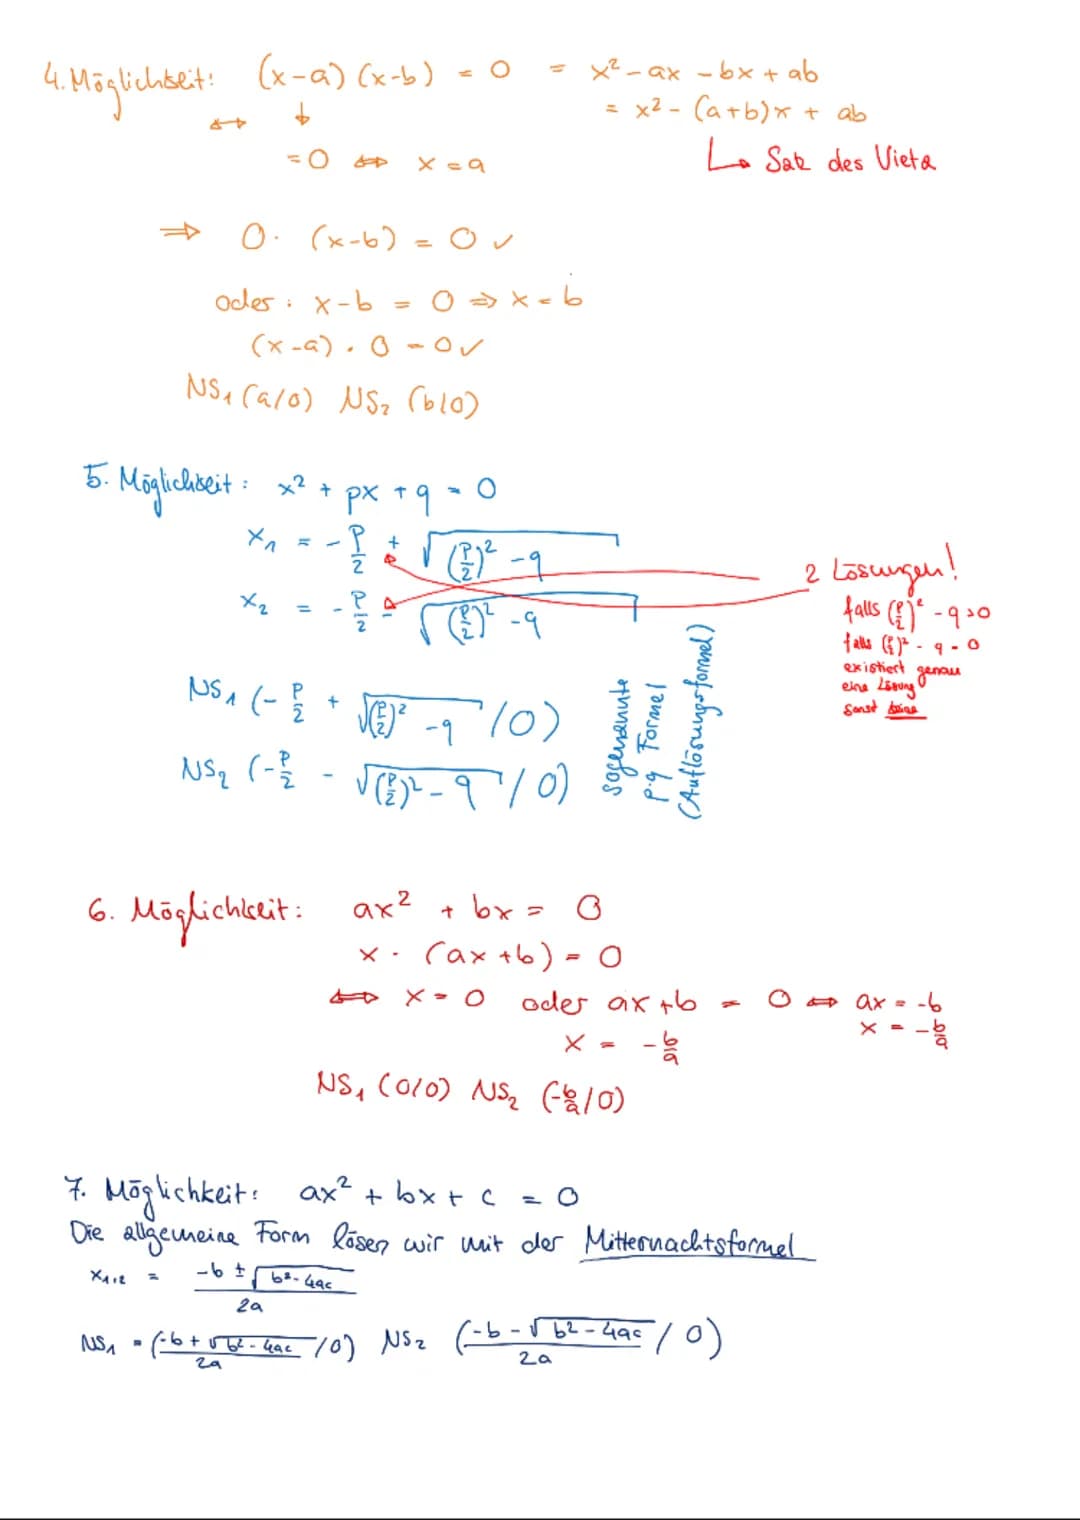 4. Möglichkeit: (x-a) (x-b) = 0 = x² - ax - bx + ab
↔ ↓ = x² - (a+b)x + ab
= 0 ⇔ x = a ↳ Satz des Vieta
⇒ 0 · (x-b) = 0 ✓
oder: x-b = 0 ⇒ x = b
(x-a) · 0 = 0 ✓
NS₁ (a/0) NS₂ (b/0)
5. Möglichkeit: x² + px + q = 0
x₁ = - p/2 + √((p/2)² - q)
x₂ = - p/2 - √((p/2)² - q)
2 Lösungen!
falls (p/2)² - q > 0
falls (p/2)² - q = 0
existiert genau
eine Lösung
sonst keine
NS₁ (- p/2 + √((p/2)² - q) / 0)
NS₂ (- p/2 - √((p/2)² - q) / 0)
sogenannte
p.q Formel
(Auflösungsformel)
6. Möglichkeit: ax² + bx = 0
x · (ax + b) = 0
⇔ x = 0 oder ax + b = 0 ⇔ ax = -b
x = - b/a x = - b/a
NS₁ (0/0) NS₂ (- b/a / 0)
7. Möglichkeit: ax² + bx + c = 0
Die allgemeine Form lösen wir mit der Mitternachtsformel
x₁,₂ = (-b ± √(b² - 4ac)) / 2a
NS₁ = ((-b + √(b² - 4ac)) / 2a / 0) NS₂ ((-b - √(b² - 4ac)) / 2a / 0)